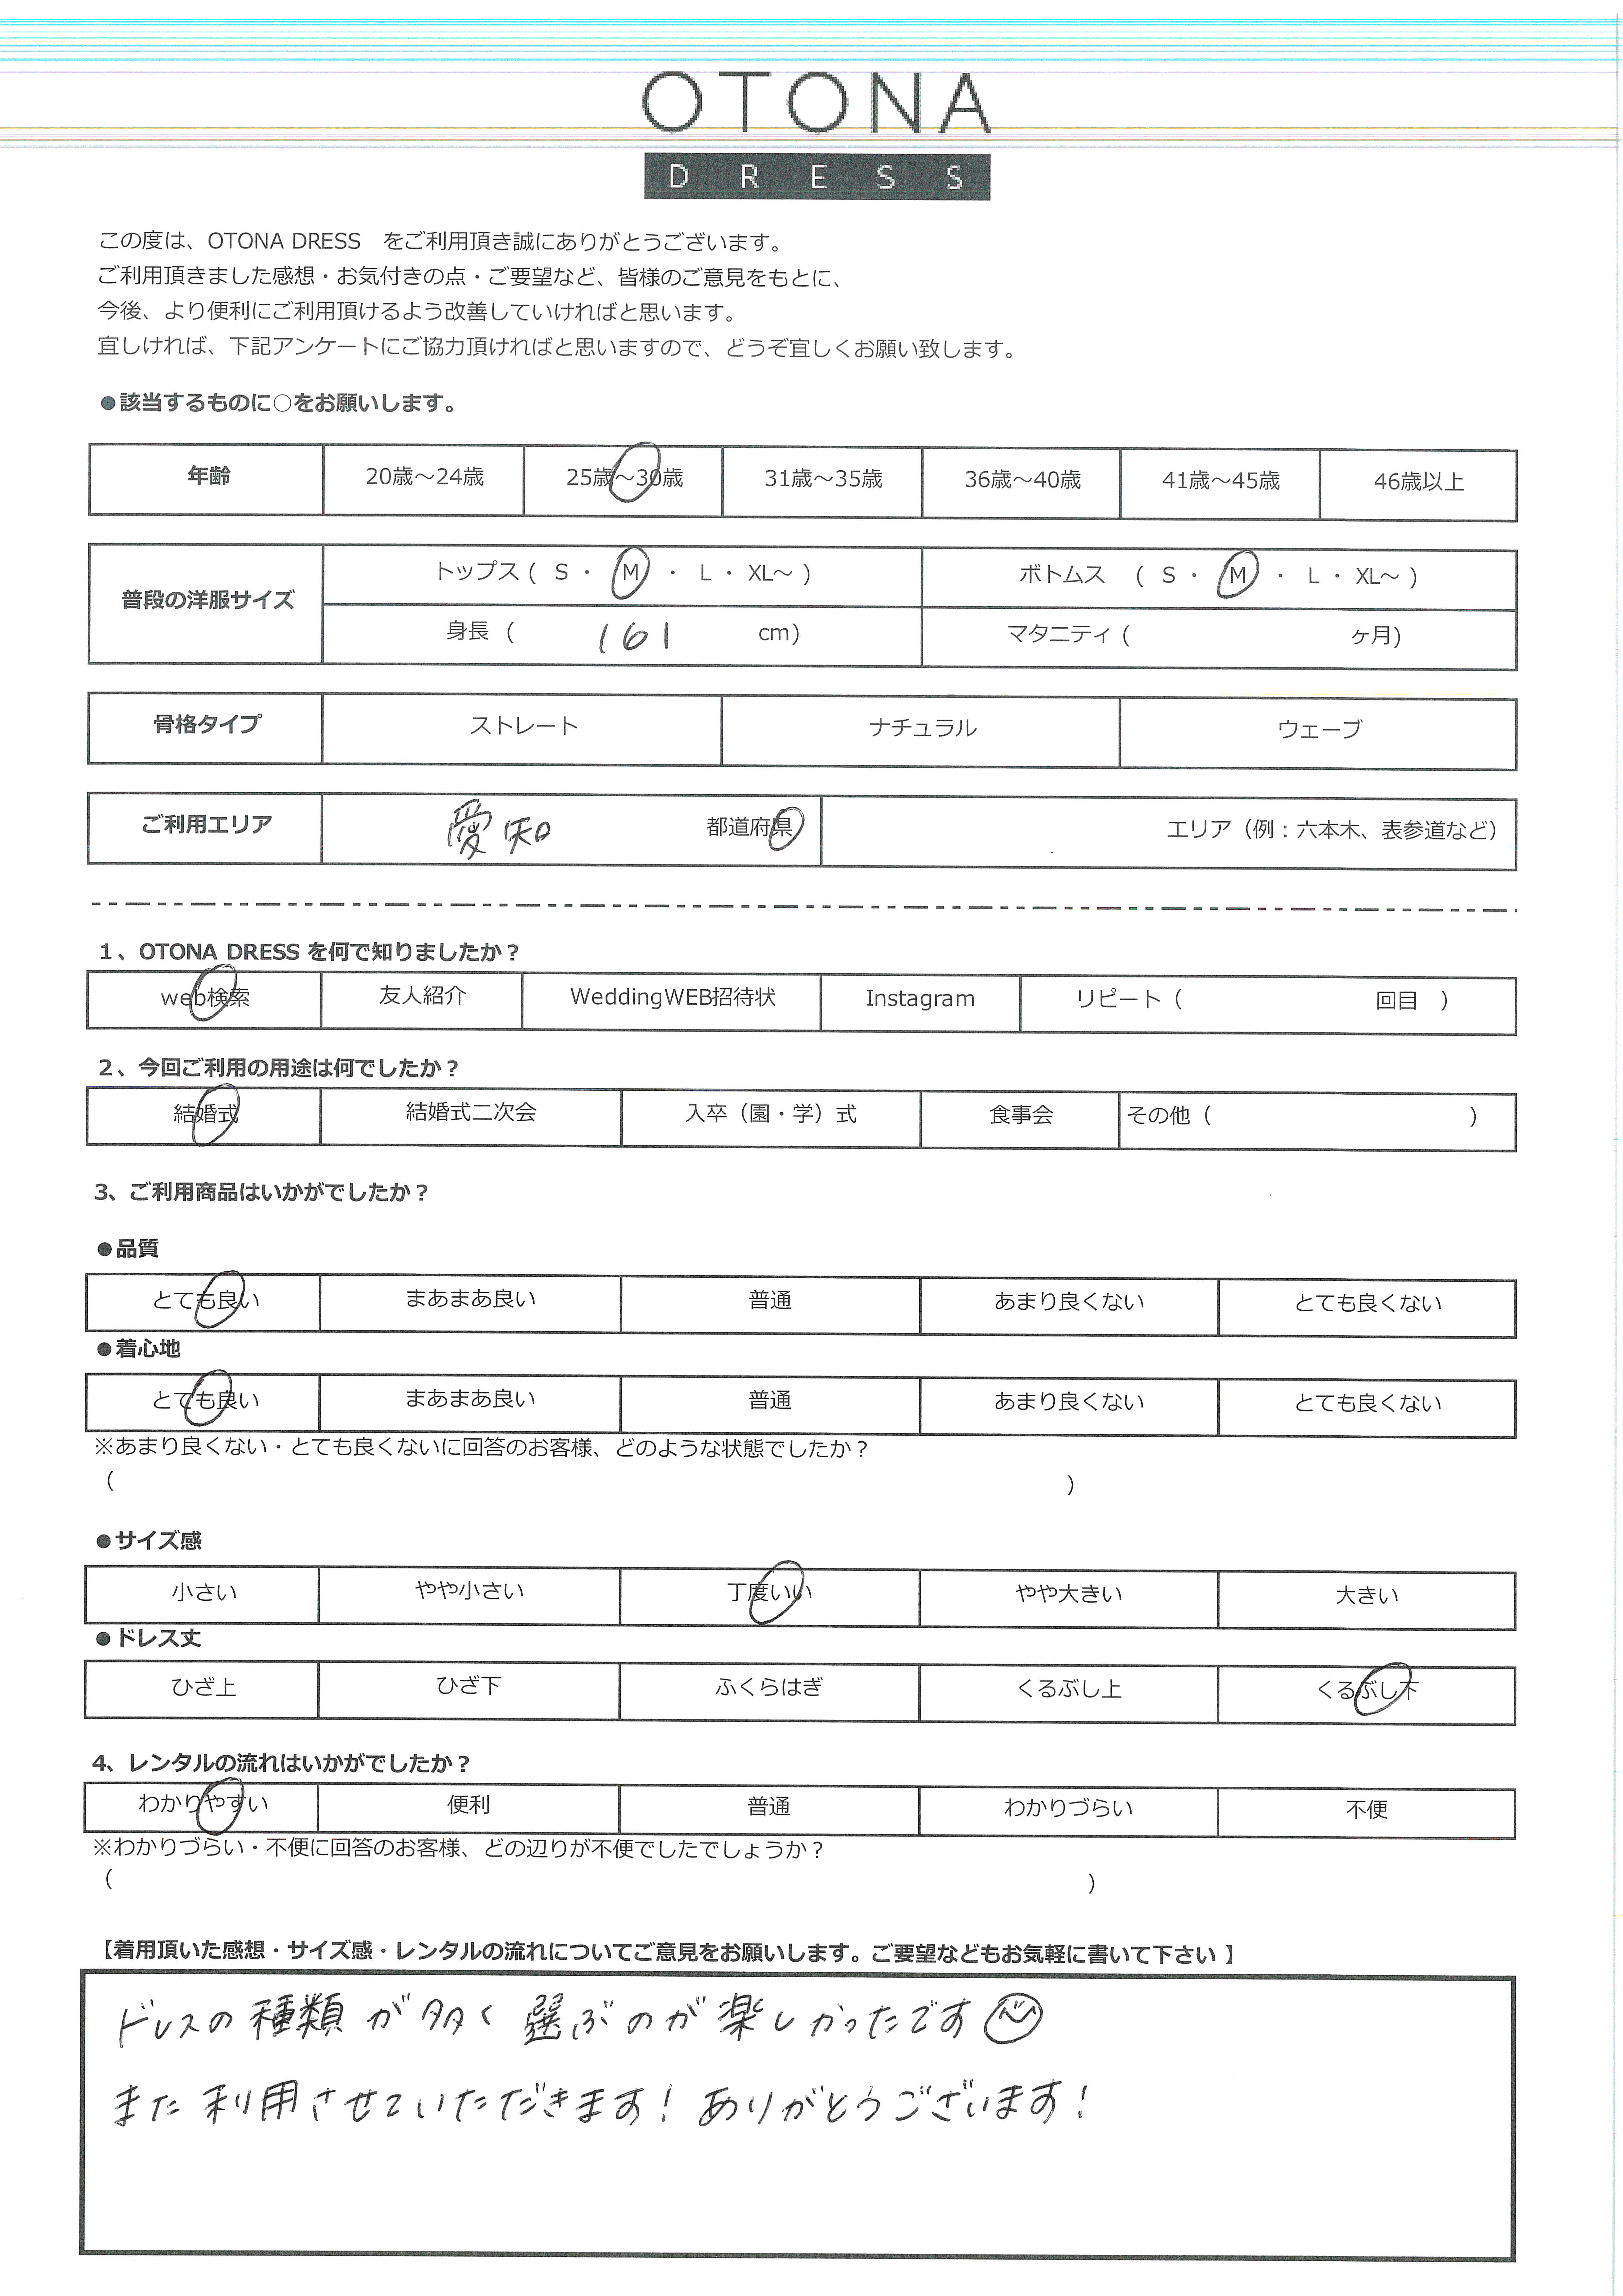 OTONA
DRESS
この度は、OTONA DRESS　をご利用頂き誠にありがとうございます。
ご利用頂きました感想・お気付きの点・ご要望など、皆様のご意見をもとに、
今後、より便利にご利用頂けるよう改善していければと思います。
宜しければ、下記アンケートにご協力頂ければと思いますので、どうぞ宜しくお願い致します。
●該当するものに○をお願いします。
年齢 20歳～24歳 25歳～30歳 31歳～35歳 36歳～40歳 41歳～45歳 46歳以上
普段の洋服サイズ
トップス ( S ・ M ・ L ・ XL～ ) ボトムス ( S ・ M ・ L ・ XL～ )
身長 ( 161 cm) マタニティ ( ヶ月)
骨格タイプ ストレート ナチュラル ウェーブ
ご利用エリア 愛知 都道府県 エリア（例：六本木、表参道など）
1、OTONA DRESS を何で知りましたか？
web検索 友人紹介 WeddingWEB招待状 Instagram リピート（ 回目 ）
2、今回ご利用の用途は何でしたか？
結婚式 結婚式二次会 入卒（園・学）式 食事会 その他（ ）
3、ご利用商品はいかがでしたか？
●品質
とても良い まあまあ良い 普通 あまり良くない とても良くない
●着心地
とても良い まあまあ良い 普通 あまり良くない とても良くない
※あまり良くない・とても良くないに回答のお客様、どのような状態でしたか？
（ ）
●サイズ感
小さい やや小さい 丁度いい やや大きい 大きい
●ドレス丈
ひざ上 ひざ下 ふくらはぎ くるぶし上 くるぶし下
4、レンタルの流れはいかがでしたか？
わかりやすい 便利 普通 わかりづらい 不便
※わかりづらい・不便に回答のお客様、どの辺りが不便でしたでしょうか？
（ ）
【着用頂いた感想・サイズ感・レンタルの流れについてご意見をお願いします。ご要望などもお気軽に書いて下さい 】
ドレスの種類が多く選ぶのが楽しかったです
また利用させていただきます！ありがとうございます！